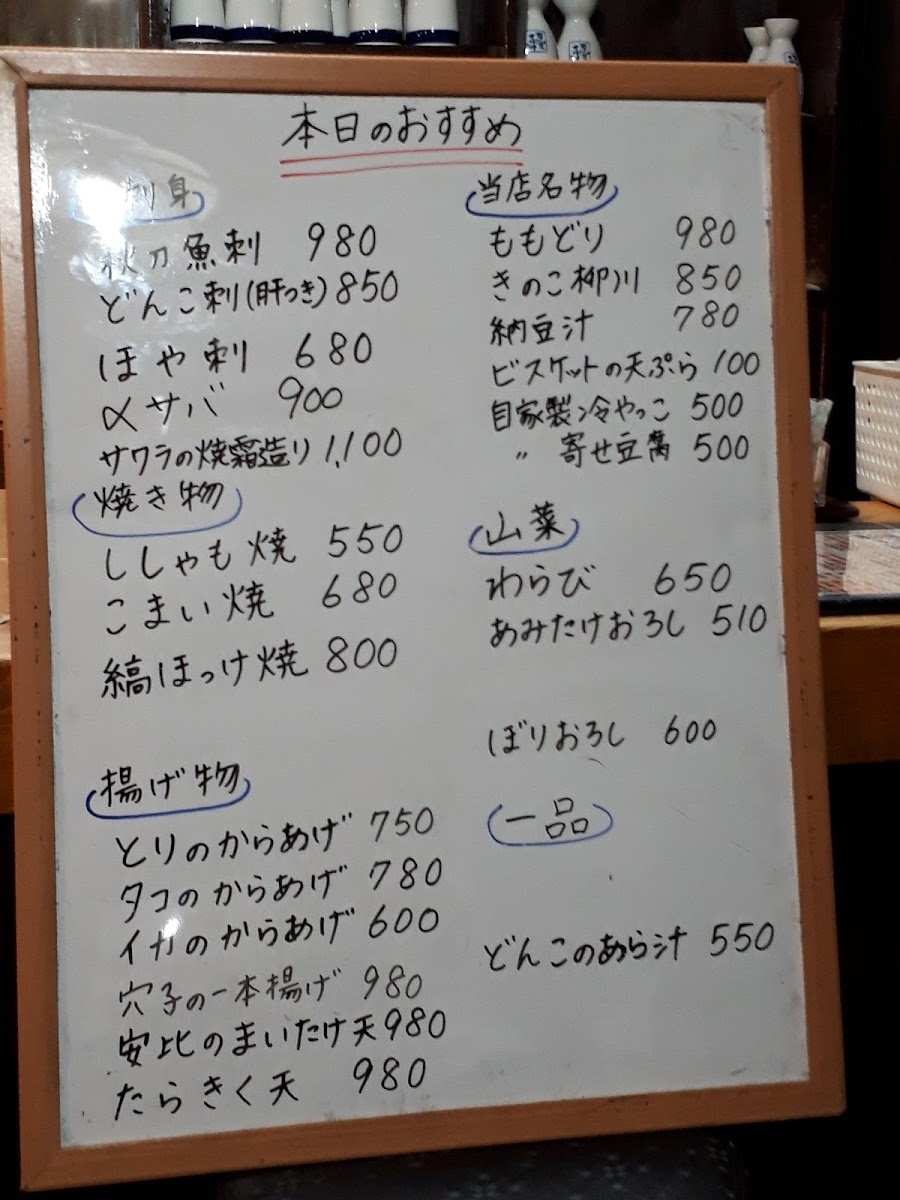 本日のおすすめ
刺身
秋刀魚刺 980
どんこ刺(肝つき) 850
ほや刺 680
〆サバ 900
サワラの焼霜造り 1,100
焼き物
ししゃも焼 550
こまい焼 680
縞ほっけ焼 800
揚げ物
とりのからあげ 750
タコのからあげ 780
イカのからあげ 600
穴子の一本揚げ 980
安比のまいたけ天 980
たらきく天 980
当店名物
ももどり 980
きのこ柳川 850
納豆汁 780
ビスケットの天ぷら 100
自家製冷やっこ 500
〃 寄せ豆腐 500
山菜
わらび 650
あみたけおろし 510
ぼりおろし 600
一品
どんこのあら汁 550